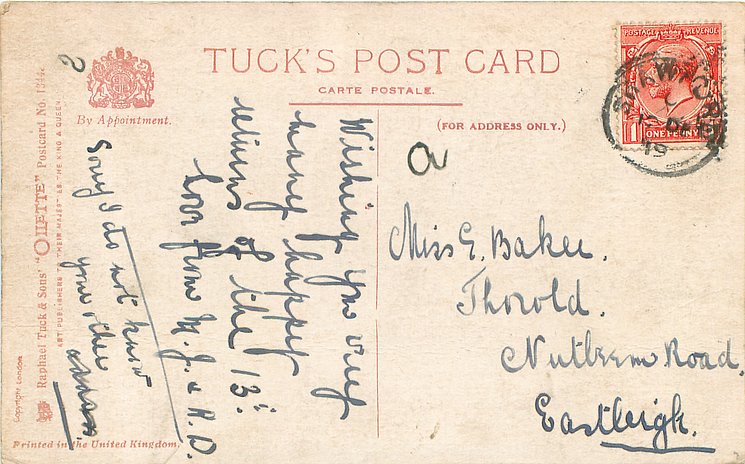 TUCK'S POST CARD
CARTE POSTALE.
By Appointment.
(FOR ADDRESS ONLY.)
POSTAGE REVENUE
1 ONE PENNY 1
19
a
2
Wishing you very
many happy
returns of the 13th.
Love from M.J. & H.D.
Sorry I do not know
your other
Miss E. Baker.
Thorold.
Nutbeem Road,
Eastleigh.
Raphael Tuck & Sons' "OILETTE" Postcard No.
ART PUBLISHERS TO THEIR MAJESTIES THE KING & QUEEN.
Copyright London
Printed in the United Kingdom.